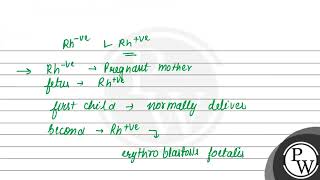 Rh-ve L Rh+ve
→ Rh-ve → Pregnant mother
fetus → Rh+ve
first child → normally delivers
Second → Rh+ve ↴
erythroblastosis foetalis
PW